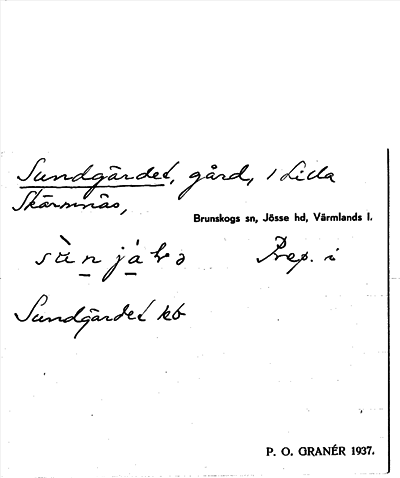 Sundgärdet, gård, i Lilla
Skärmnäs,
Brunskogs sn, Jösse hd, Värmlands l.
Prep. i
Sundgärdet kb
P. O. GRANÉR 1937.